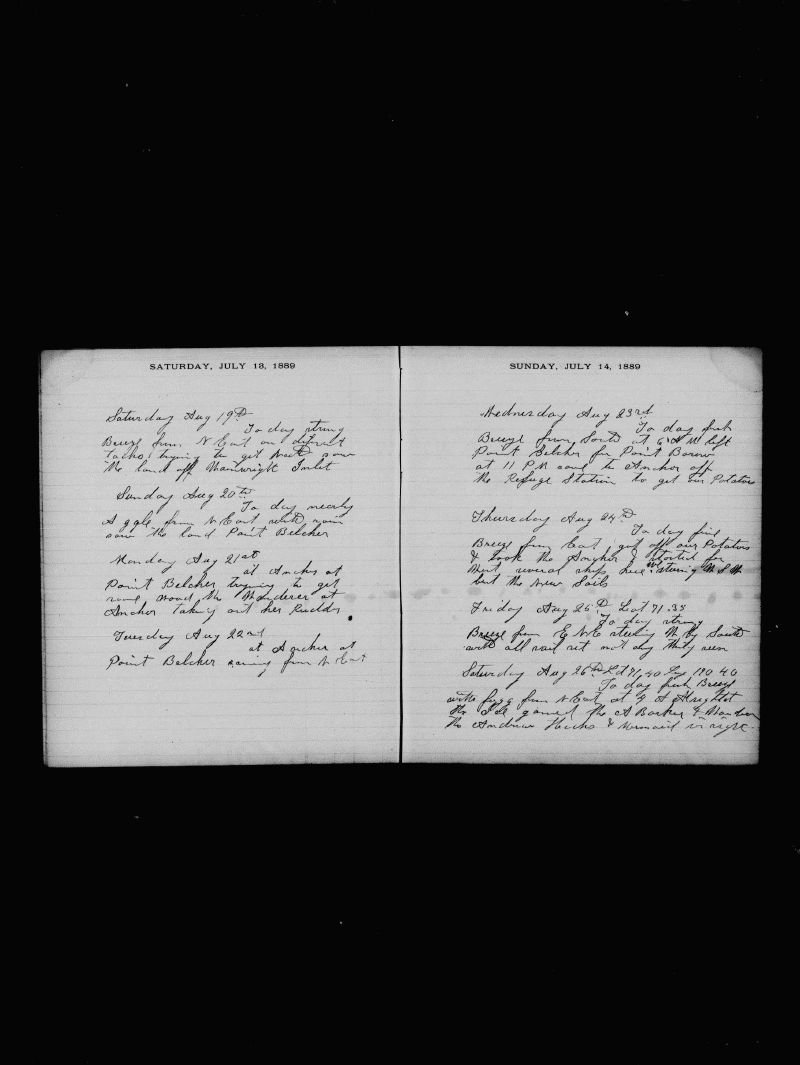 SATURDAY, JULY 13, 1889
Saturday Aug 19th
To day strong
Breeze from N East on diferent
tacks trying to get saw
the land off Wainwright Inlet
Sunday Aug 20th
To day nearly
A gale from N East with rain
saw the land Point Belcher
Monday Aug 21st
at Anchor at
Point Belcher trying to get
some wood the Wanderer at
Anchor taking out her Rudder
Tuesday Aug 22nd
at Anchor at
Point Belcher raining from N East
SUNDAY, JULY 14, 1889
Wednesday Aug 23rd
To day fresh
Breeze from South at 6 A M left
Point Belcher for Point Borow
at 11 P M came to Anchor off
the Refuge Station to get our Potatos
Thursday Aug 24th
To day fine
Breeze from East got off our Potatos
& took the Anchor & started for
West several ships here steering W S W
bent the New Sails
Friday Aug 25th Lat 71.35
To day strong
Breeze from E N E steering W by South
with all sail set not any thing seen
Saturday Aug 26th Lat 71,40 Log 170 40
To day fresh Breeze
with fogg from N East at 4 A M sighted
the Ice gamed the A Barker & Wanderer
the Andrew Hicks & Mermaid in sight